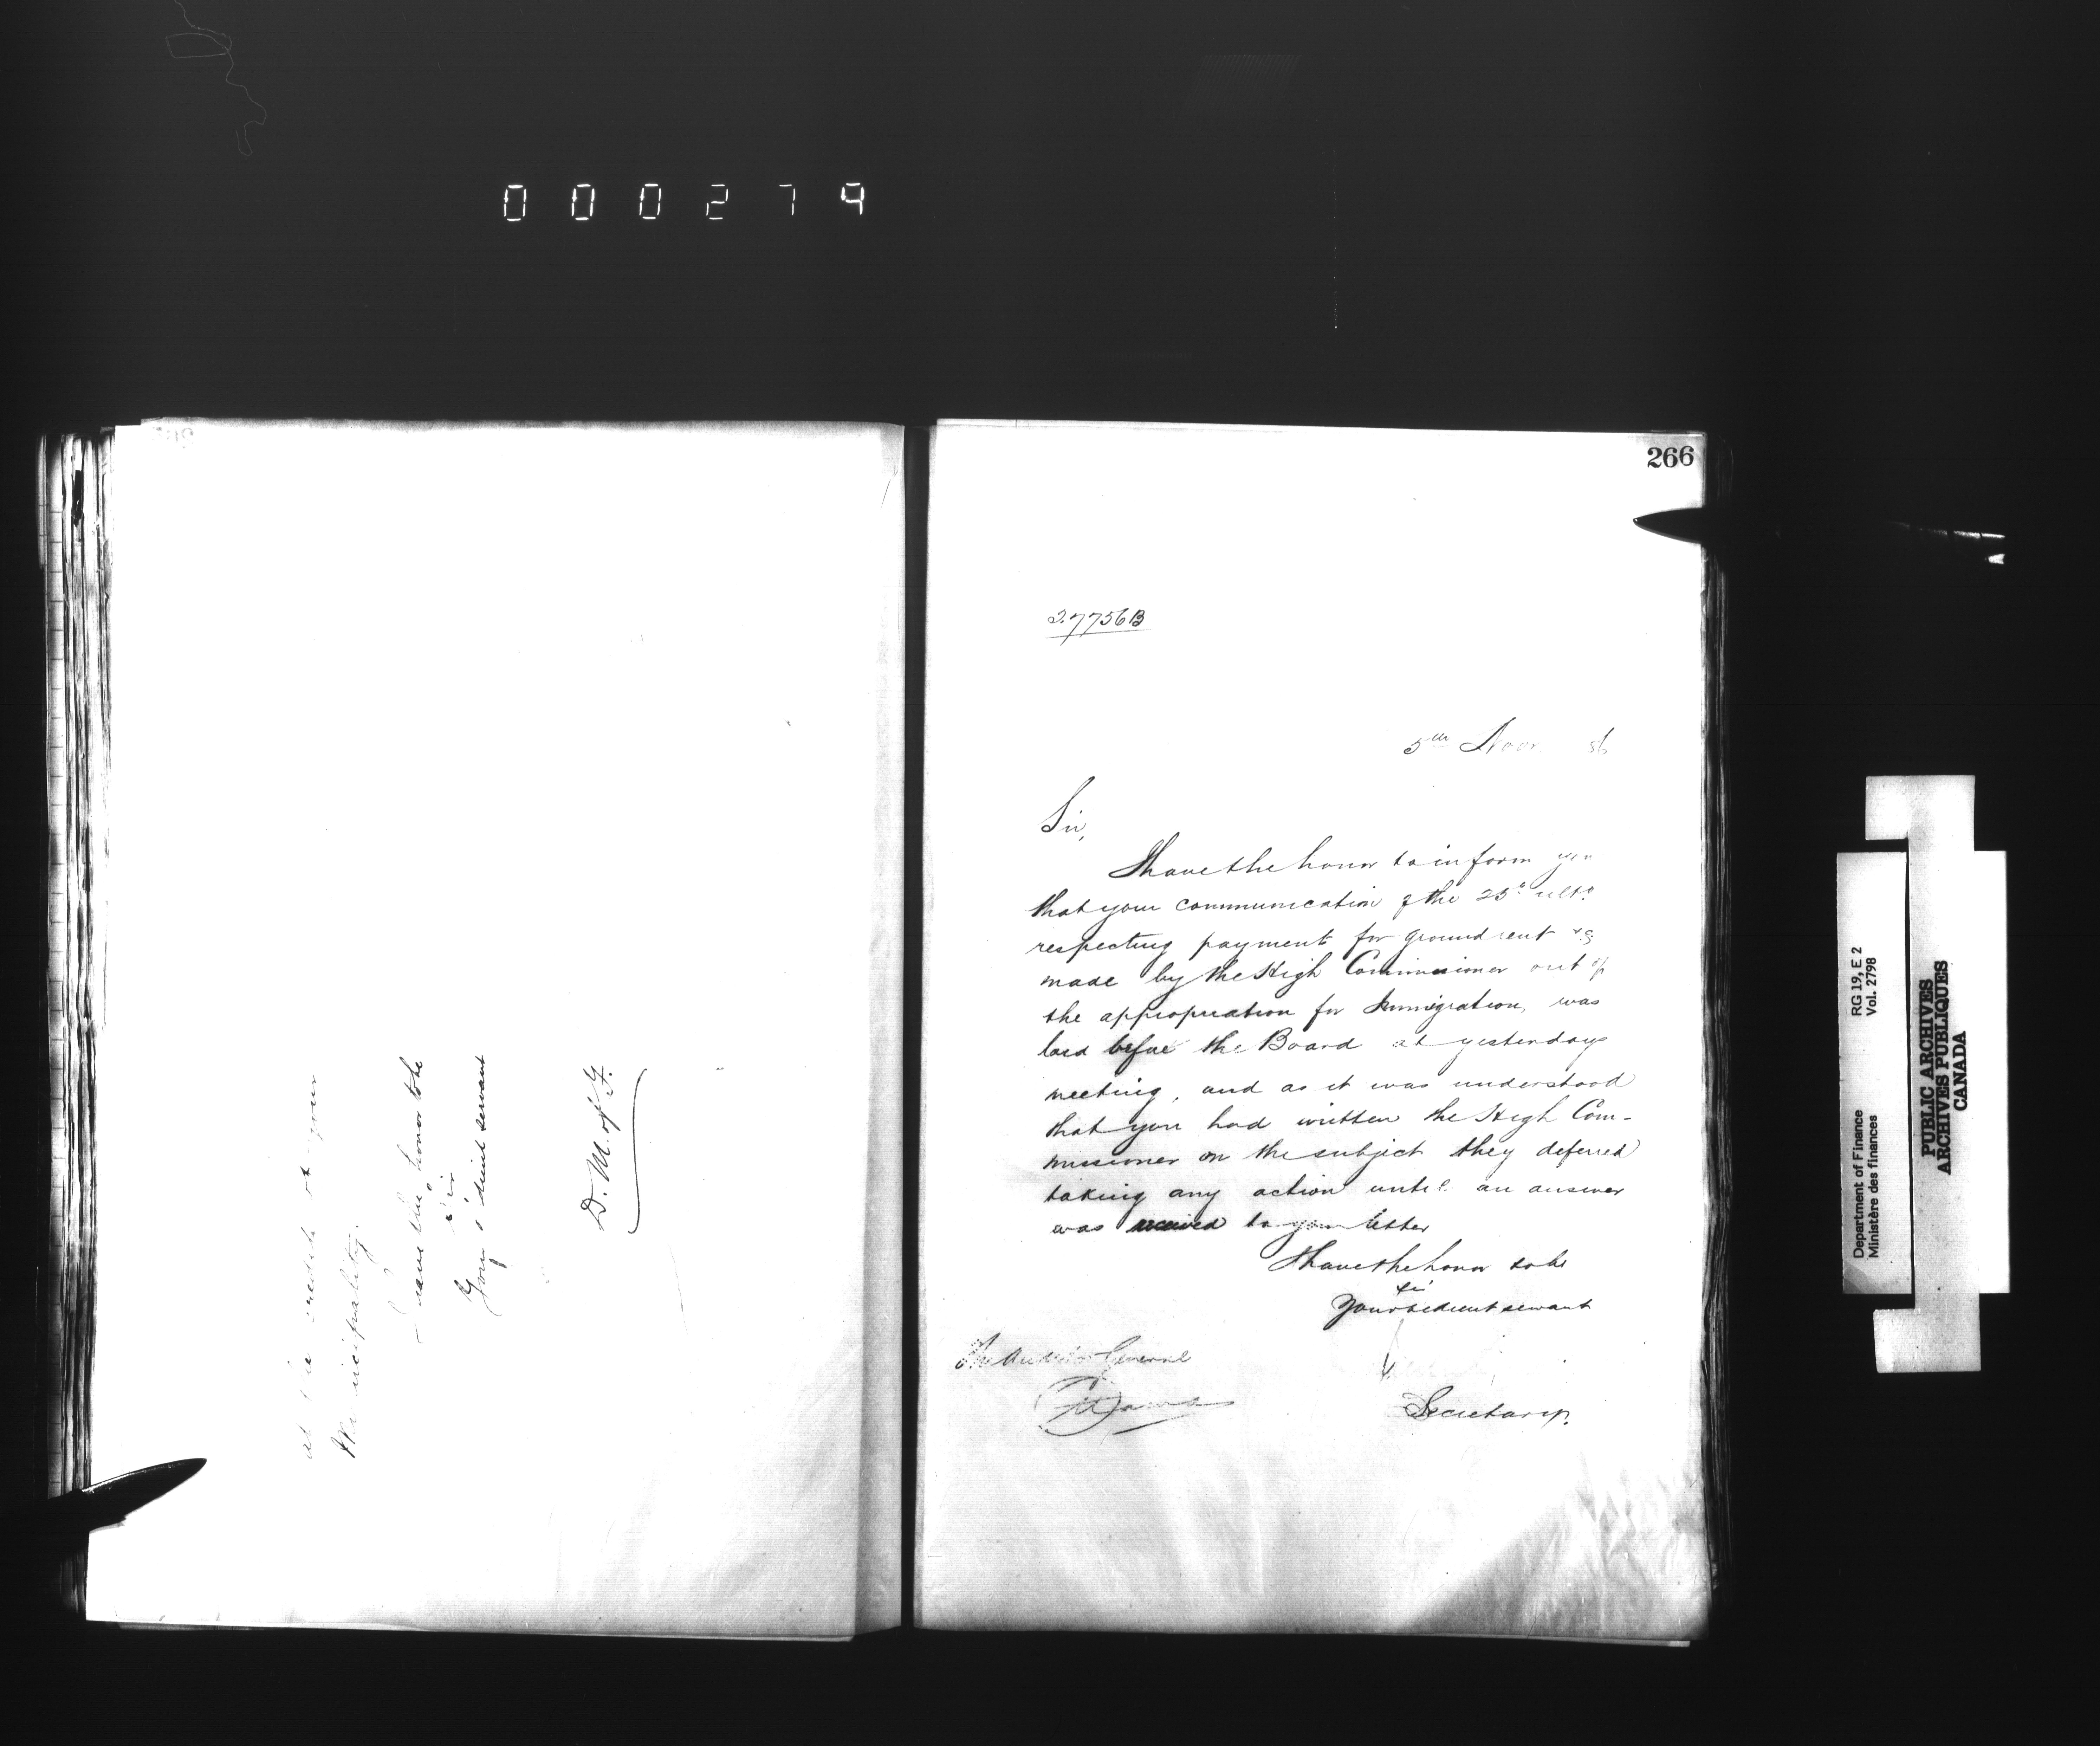 000279
at the credit of your
Municipality.
I have the honor to be
Sir
Your obedient servant
D. M. of F.
266
27756B
5th Novr 86
Sir,
I have the honor to inform you
that your communication of the 25th ulto
respecting payment for ground rent &c
made by the High Commissioner out of
the appropriation for Immigration, was
laid before the Board at yesterdays
meeting, and as it was understood
that you had written the High Com-
missioner on the subject they deferred
taking any action until an answer
was received to your letter
I have the honor to be
Sir
Your obedient servant
The Auditor General
Ottawa
Secretary.
Department of Finance RG 19, E 2
Ministère des finances Vol. 2798
PUBLIC ARCHIVES
ARCHIVES PUBLIQUES
CANADA